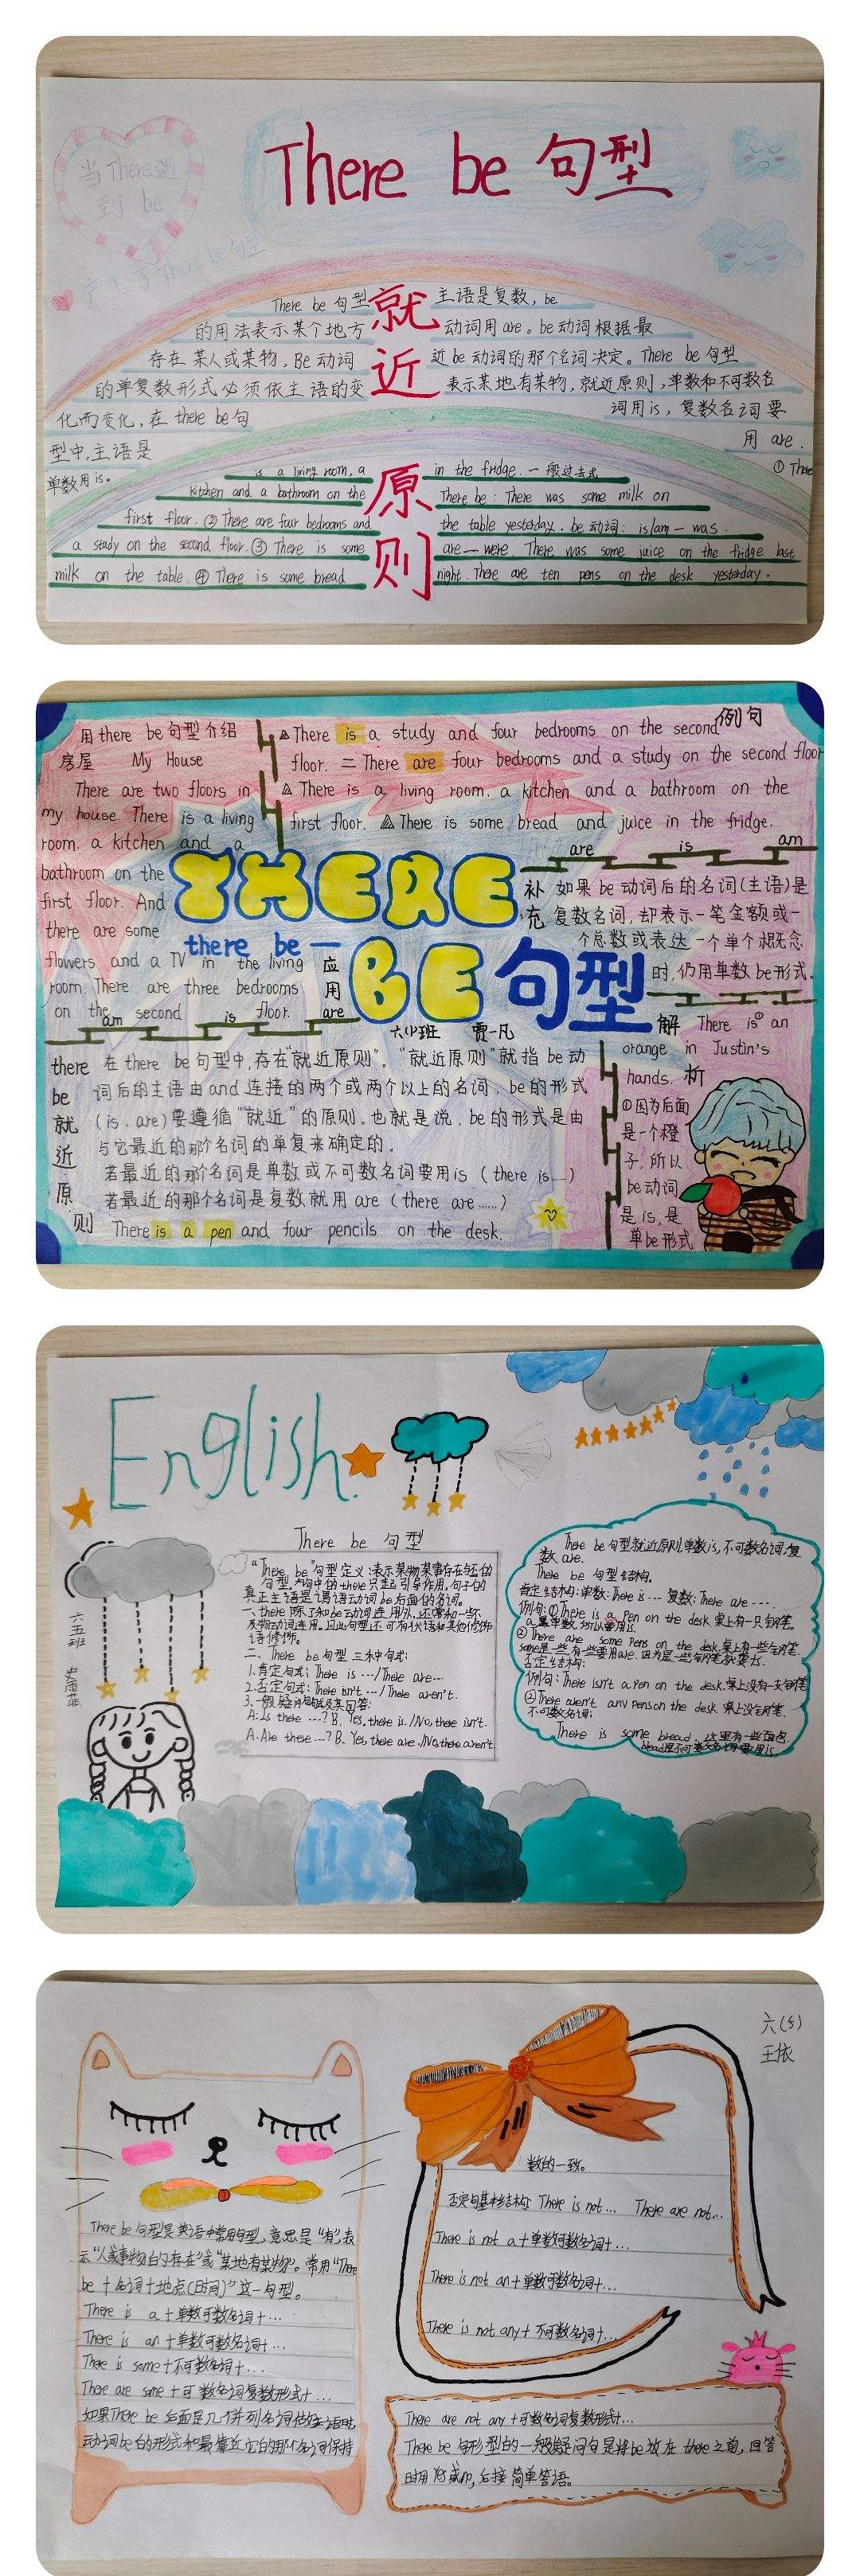 There be 句型
当There遇
到 be
产生了There be句型
There be 句型
的用法表示某个地方
存在某人或某物，Be动词
的单复数形式必须依主语的变
化而变化，在 there be句
型中，主语是
单数用is。
就
近
原
则
主语是复数，be
动词用are。be动词根据最
近be动词的那个名词决定。There be句型
表示某地有某物，就近原则，单数和不可数名
词用is，复数名词要
用 are.
① There
is a living room, a
kitchen and a bathroom on the
first floor. ② There are four bedrooms and
a study on the second floor. ③ There is some
milk on the table. ④ There is some bread
in the fridge. 一般过去式
There be: There was some milk on
the table yesterday. be动词: is/am — was.
are — were. There was some juice on the fridge last
night. There are ten pens on the desk yesterday.
用there be句型介绍
房屋 My House
There are two floors in
my house. There is a living
room. a kitchen and a
bathroom on the
first floor. And
there are some
flowers and a TV in the living
room. There are three bedrooms
on the second floor.
例句
There is a study and four bedrooms on the second
floor. 二 There are four bedrooms and a study on the second floor
There is a living room. a kitchen and a bathroom on the
first floor. There is some bread and juice in the fridge.
are is am
THERE
there be 一
应用
BE句型
六(4)班 贾一凡
补充
如果be动词后的名词(主语)是
复数名词，却表示一笔金额或一
个总数或表达一个单个概念
时，仍用单数be形式。
am is are
there be 就近原则
在there be句型中，存在“就近原则”。“就近原则”就指be动
词后的主语由and连接的两个或两个以上的名词，be的形式
(is、are)要遵循“就近”的原则。也就是说，be的形式是由
与它最近的那个名词的单复来确定的。
若最近的那个名词是单数或不可数名词要用is (there is……)
若最近的那个名词是复数就用are (there are……)
There is a pen and four pencils on the desk.
解析
There is① an
orange in Justin's
hands.
①因为后面
是一个橙
子，所以
be动词
是is，是
单be形式
English.
六五班
There be 句型
“There be”句型定义：表示某物某事存在与经的
句型，句中的there只起引导作用，句子的
真正主语是谓语动词be后面的名词。
一、there 除了和be动词连用外，还常和一些不
及物动词连用。且此句型还可有状语和其他修饰
语修饰。
二、There be 句型 三种句式：
1.肯定句式: There is …/There are…
2.否定句式: There isn't …/There aren't.
3.一般疑问句式及其回答:
A: Is there …? B、Yes, there is./No, there isn't.
A. Are there …? B、Yes, there are./No, there aren't.
There be句型就近原则，单数is，不可数名词/复
数 are.
There be 句型结构。
肯定结构：单数：There is … 复数：There are …
例句：①There is a pen on the desk.桌上有一只钢笔。
a是单数，所以要用is.
②There are some pens on the desk.桌上有一些钢笔.
否定结构：
例句：There isn't a pen on the desk.桌上没有一支钢笔
②There aren't any pens on the desk 桌上没有钢笔.
不可数名词：
There is some bread. 这里有一些面包.
bread是不可数名词要用is
六(5)
王依
There be句型是英语中常用句型，意思是“有”，表
示“人或事物的存在”或“某地有某物”。常用“There
be + 名词 + 地点(时间)”这一句型。
There is a + 单数可数名词 + …
There is an + 单数可数名词 + …
There is some + 不可数名词 + …
There are some + 可数名词复数形式 + …
如果There be 后面是几个并列名词做主语时
动词be的形式和最靠近它的那个名词保持
数的一致。
否定句基本结构: There is not… There are not…
There is not a + 单数可数名词 + …
There is not an + 单数可数名词 + …
There is not any + 不可数名词 + …
There are not any + 可数名词复数形式 + …
There be 句形型的一般疑问句是将be放在 there之前，回答
时用yes或no，后接简单答语。